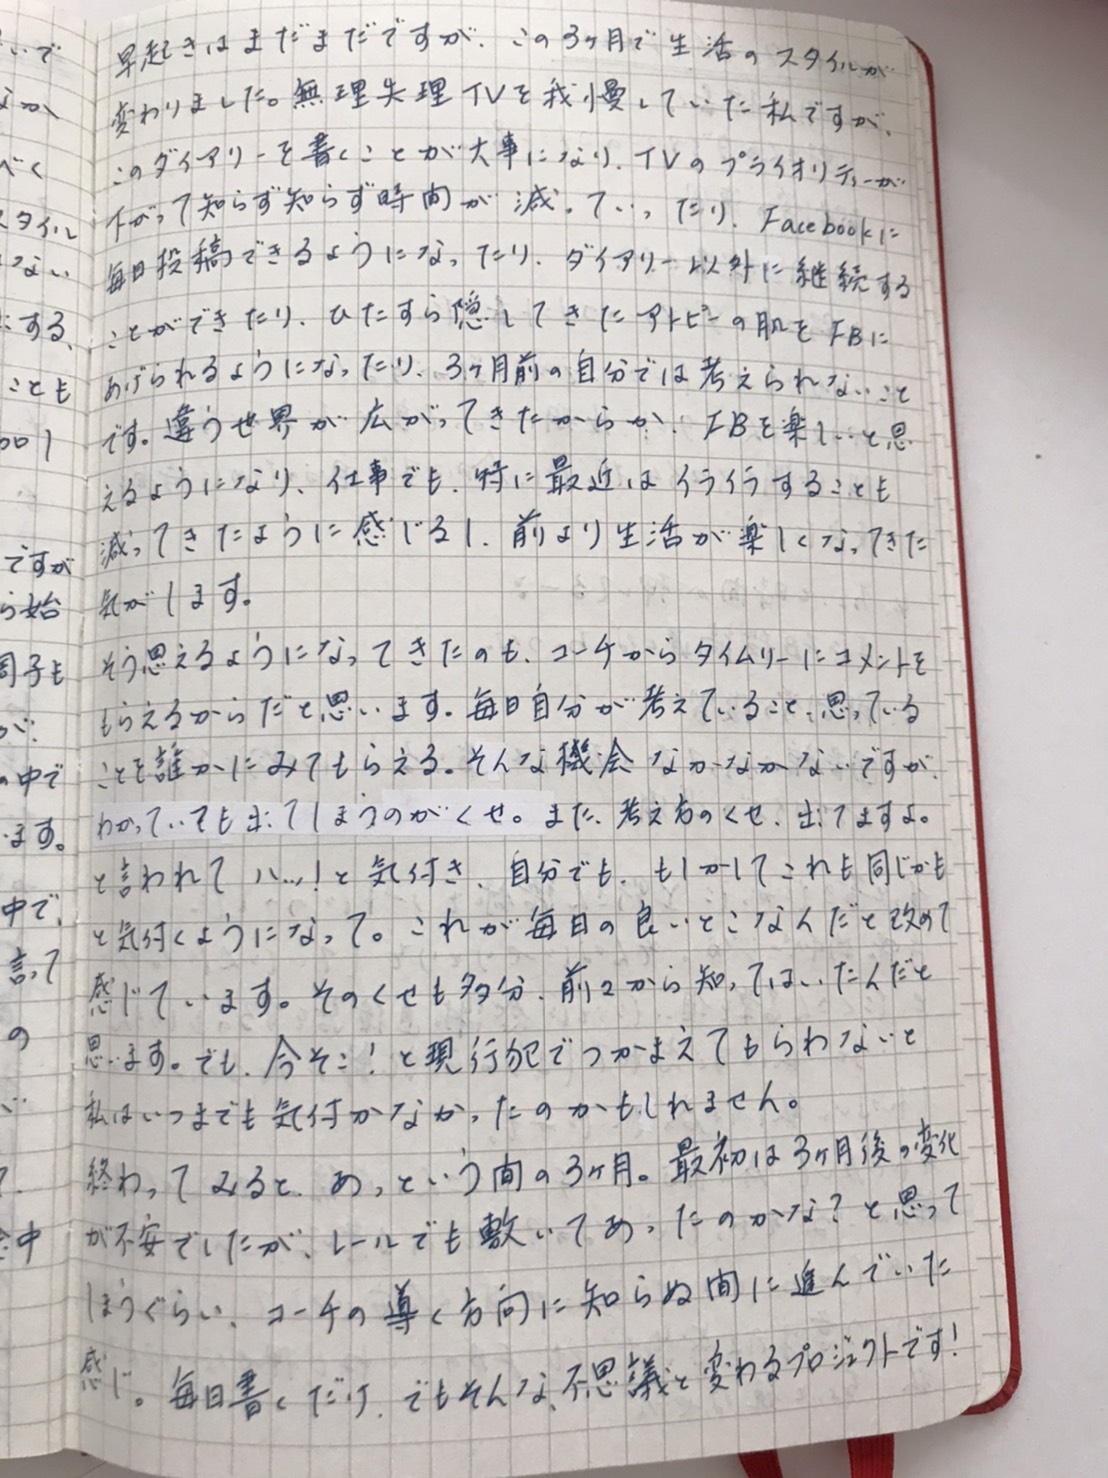 早起きはまだまだですが、この3ヶ月で生活のスタイルが
変わりました。無理矢理TVを我慢していた私ですが、
このダイアリーを書くことが大事になり、TVのプライオリティーが
下がって知らず知らず時間が減っていったり、Facebookに
毎日投稿できるようになったり、ダイアリー以外に継続する
ことができたり、ひたすら隠してきたアトピーの肌をFBに
あげられるようになったり、3ヶ月前の自分では考えられないこと
です。違う世界が広がってきたからか、FBを楽しいと思
えるようになり、仕事でも、特に最近はイライラすることも
減ってきたように感じるし、前より生活が楽しくなってきた
気がします。
そう思えるようになってきたのも、コーチからタイムリーにコメントを
もらえるからだと思います。毎日自分が考えていること、思っている
ことを誰かにみてもらえる。そんな機会なかなかないですが、
わかっていても出てしまうのがくせ。また、考え方のくせ、出てますよ。
と言われてハッ…!と気付き、自分でも、もしかしてこれも同じかも
と気付くようになって。これが毎日の良いとこなんだと改めて
感じています。そのくせも多分、前々から知ってはいたんだと
思います。でも、今そこ!と現行犯でつかまえてもらわないと
私はいつまでも気付かなかったのかもしれません。
終わってみると、あっという間の3ヶ月。最初は3ヶ月後の変化
が不安でしたが、レールでも敷いてあったのかな?と思って
しまうぐらい、コーチの導く方向に知らぬ間に進んでいた
感じ。毎日書くだけ、でもそんな、不思議と変わるプロジェクトです!